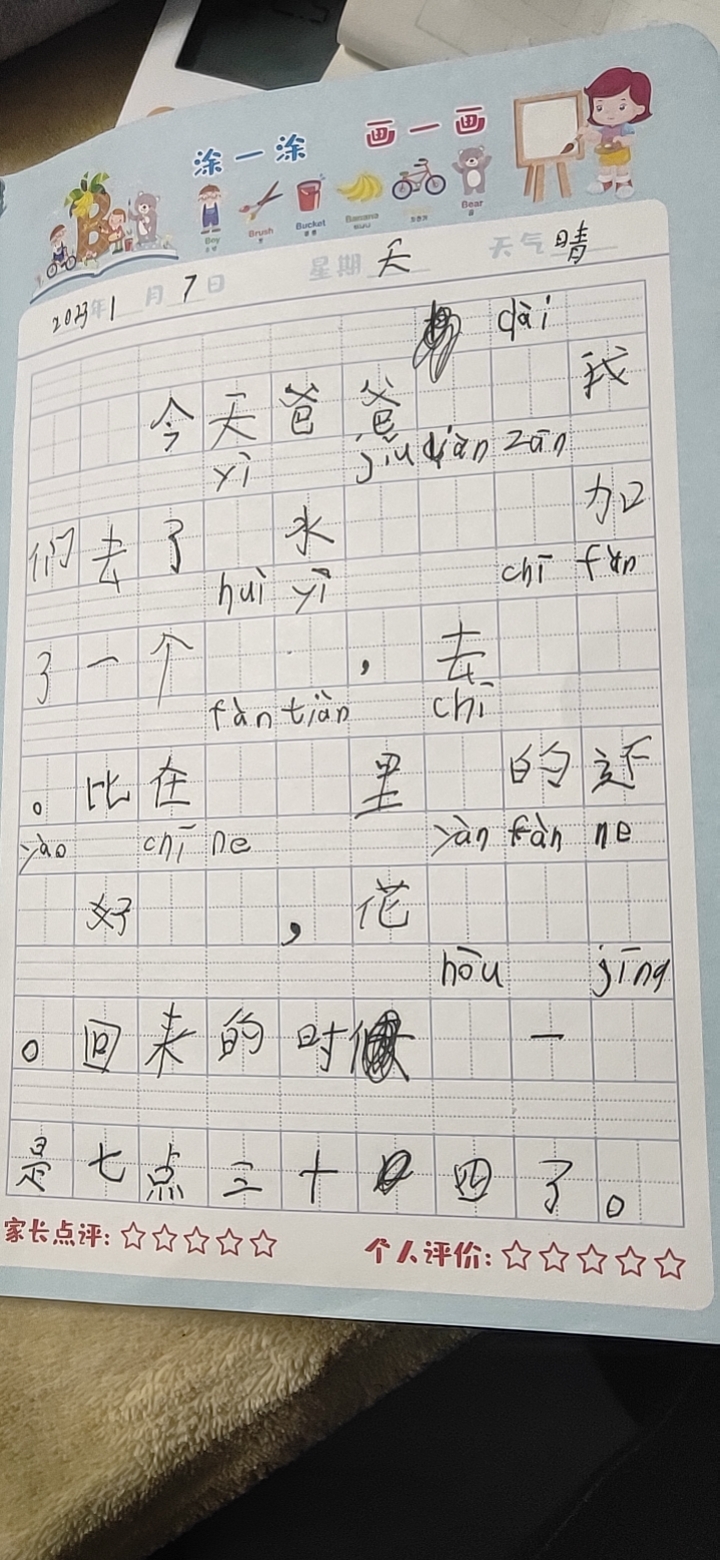 涂一涂 画一画
Boy Brush Bucket Banana Bear
2023年1月7日 星期天 天气晴
dài
今天爸爸我
yì jiǔ diàn zān
们去了水加
huì yì chī fàn
了一个,去
fàn tiàn chī
。比在里的还
yào chī ne yàn fàn ne
好,花
hōu jīng
。回来的时候一
是七点三十四了。
家长点评: 个人评价: